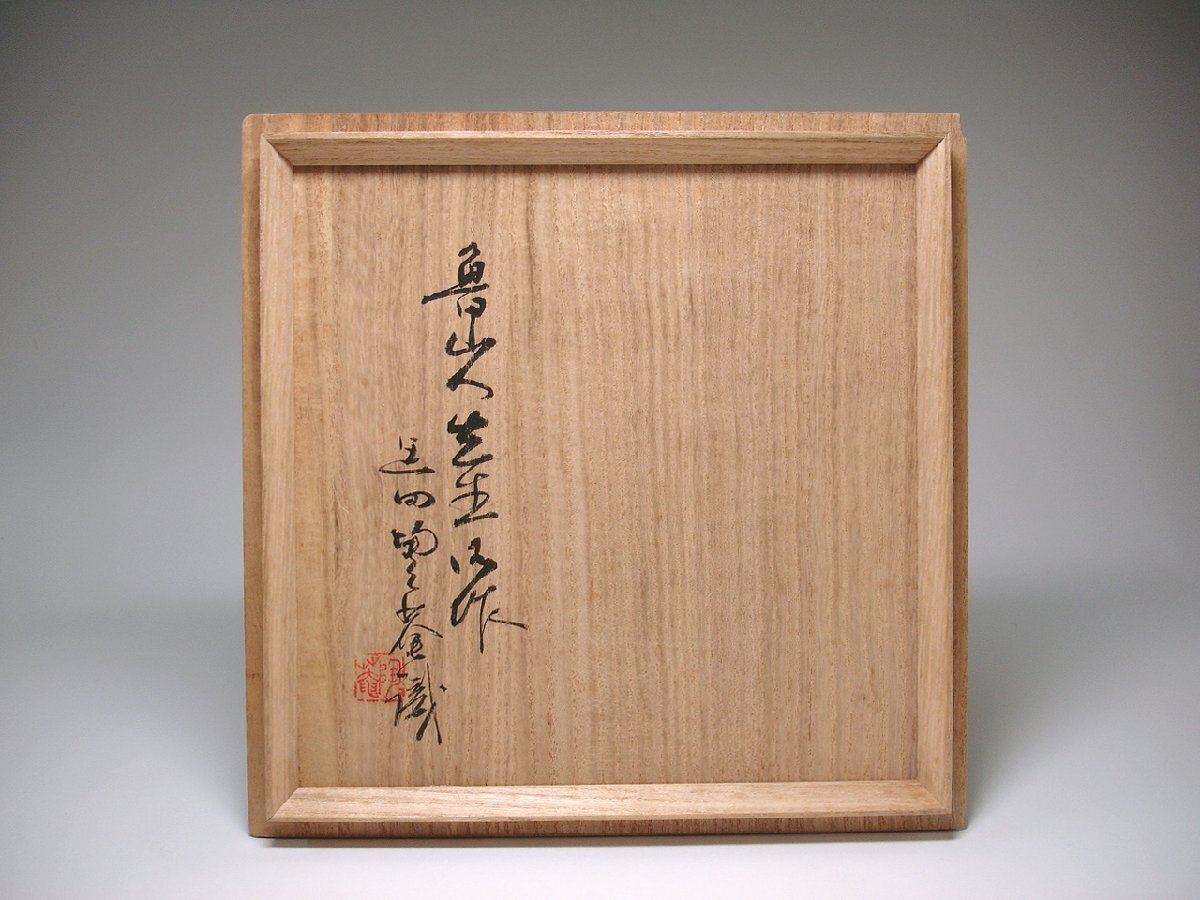 魯山人先生御作
黒田陶々菴識